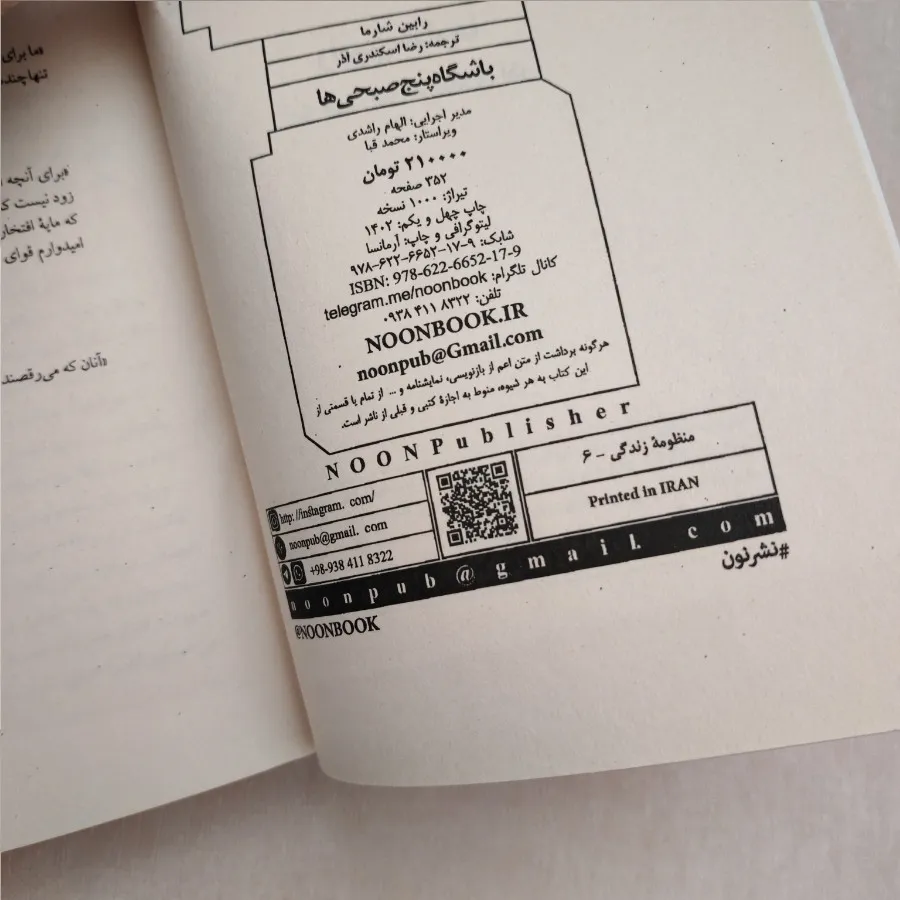 رابین شارما
ترجمه: رضا اسکندری آذر
باشگاه پنج صبحی‌ها
مدیر اجرایی: الهام راشدی
ویراستار: محمد قبا
۲۱۰۰۰۰ تومان
۳۵۲ صفحه
تیراژ: ۱۰۰۰ نسخه
چاپ چهل و یکم: ۱۴۰۲
لیتوگرافی و چاپ: آرمانسا
شابک: ۹-۱۷-۶۶۵۲-۶۲۲-۹۷۸
ISBN: 978-622-6652-17-9
کانال تلگرام: telegram.me/noonbook
تلفن: ۸۳۲۲ ۴۱۱ ۰۹۳۸
NOONBOOK.IR
noonpub@Gmail.com
هرگونه برداشت از متن اعم از بازنویسی، نمایشنامه و ... از تمام یا قسمتی از
این کتاب به هر شیوه، منوط به اجازهٔ کتبی و قبلی از ناشر است.
NOONPublisher
منظومهٔ زندگی - ۶
Printed in IRAN
http://instagram. com/
noonpub@gmail. com
+98-938 411 8322
noonpub@gmail. com
#نشرنون
@NOONBOOK
«ما برای
تنها چند
«برای آنچه
زود نیست که
که مایهٔ افتخار
امیدوارم قوای
«آنان که می‌رقصند